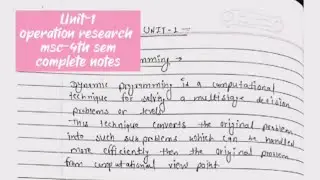 Unit-1
operation research
msc-4th sem
complete notes
UNIT-1
Dynamic Programming is a computational
technique for solving a multistage decision
problems or levels
This technique converts the original problem
into such sub problems which can be handled
more efficiently then the original problem
from computational view point